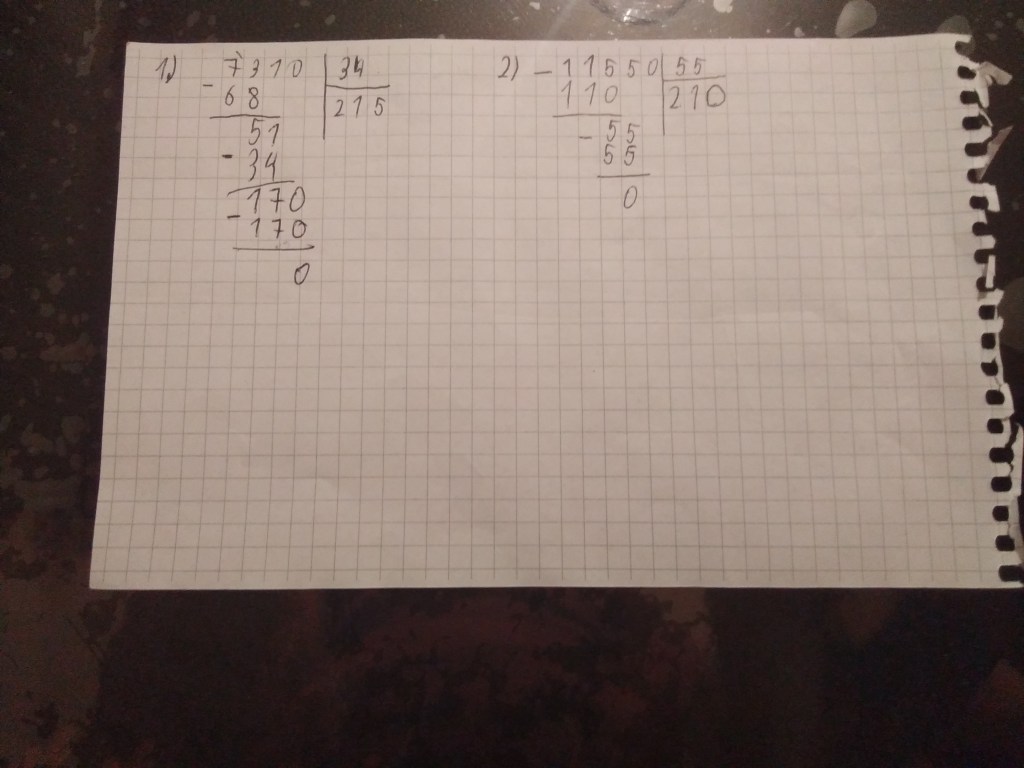 1) - 7310 | 34
68 215
51
- 34
170
- 170
0
2) - 11550 | 55
110 210
- 55
55
0